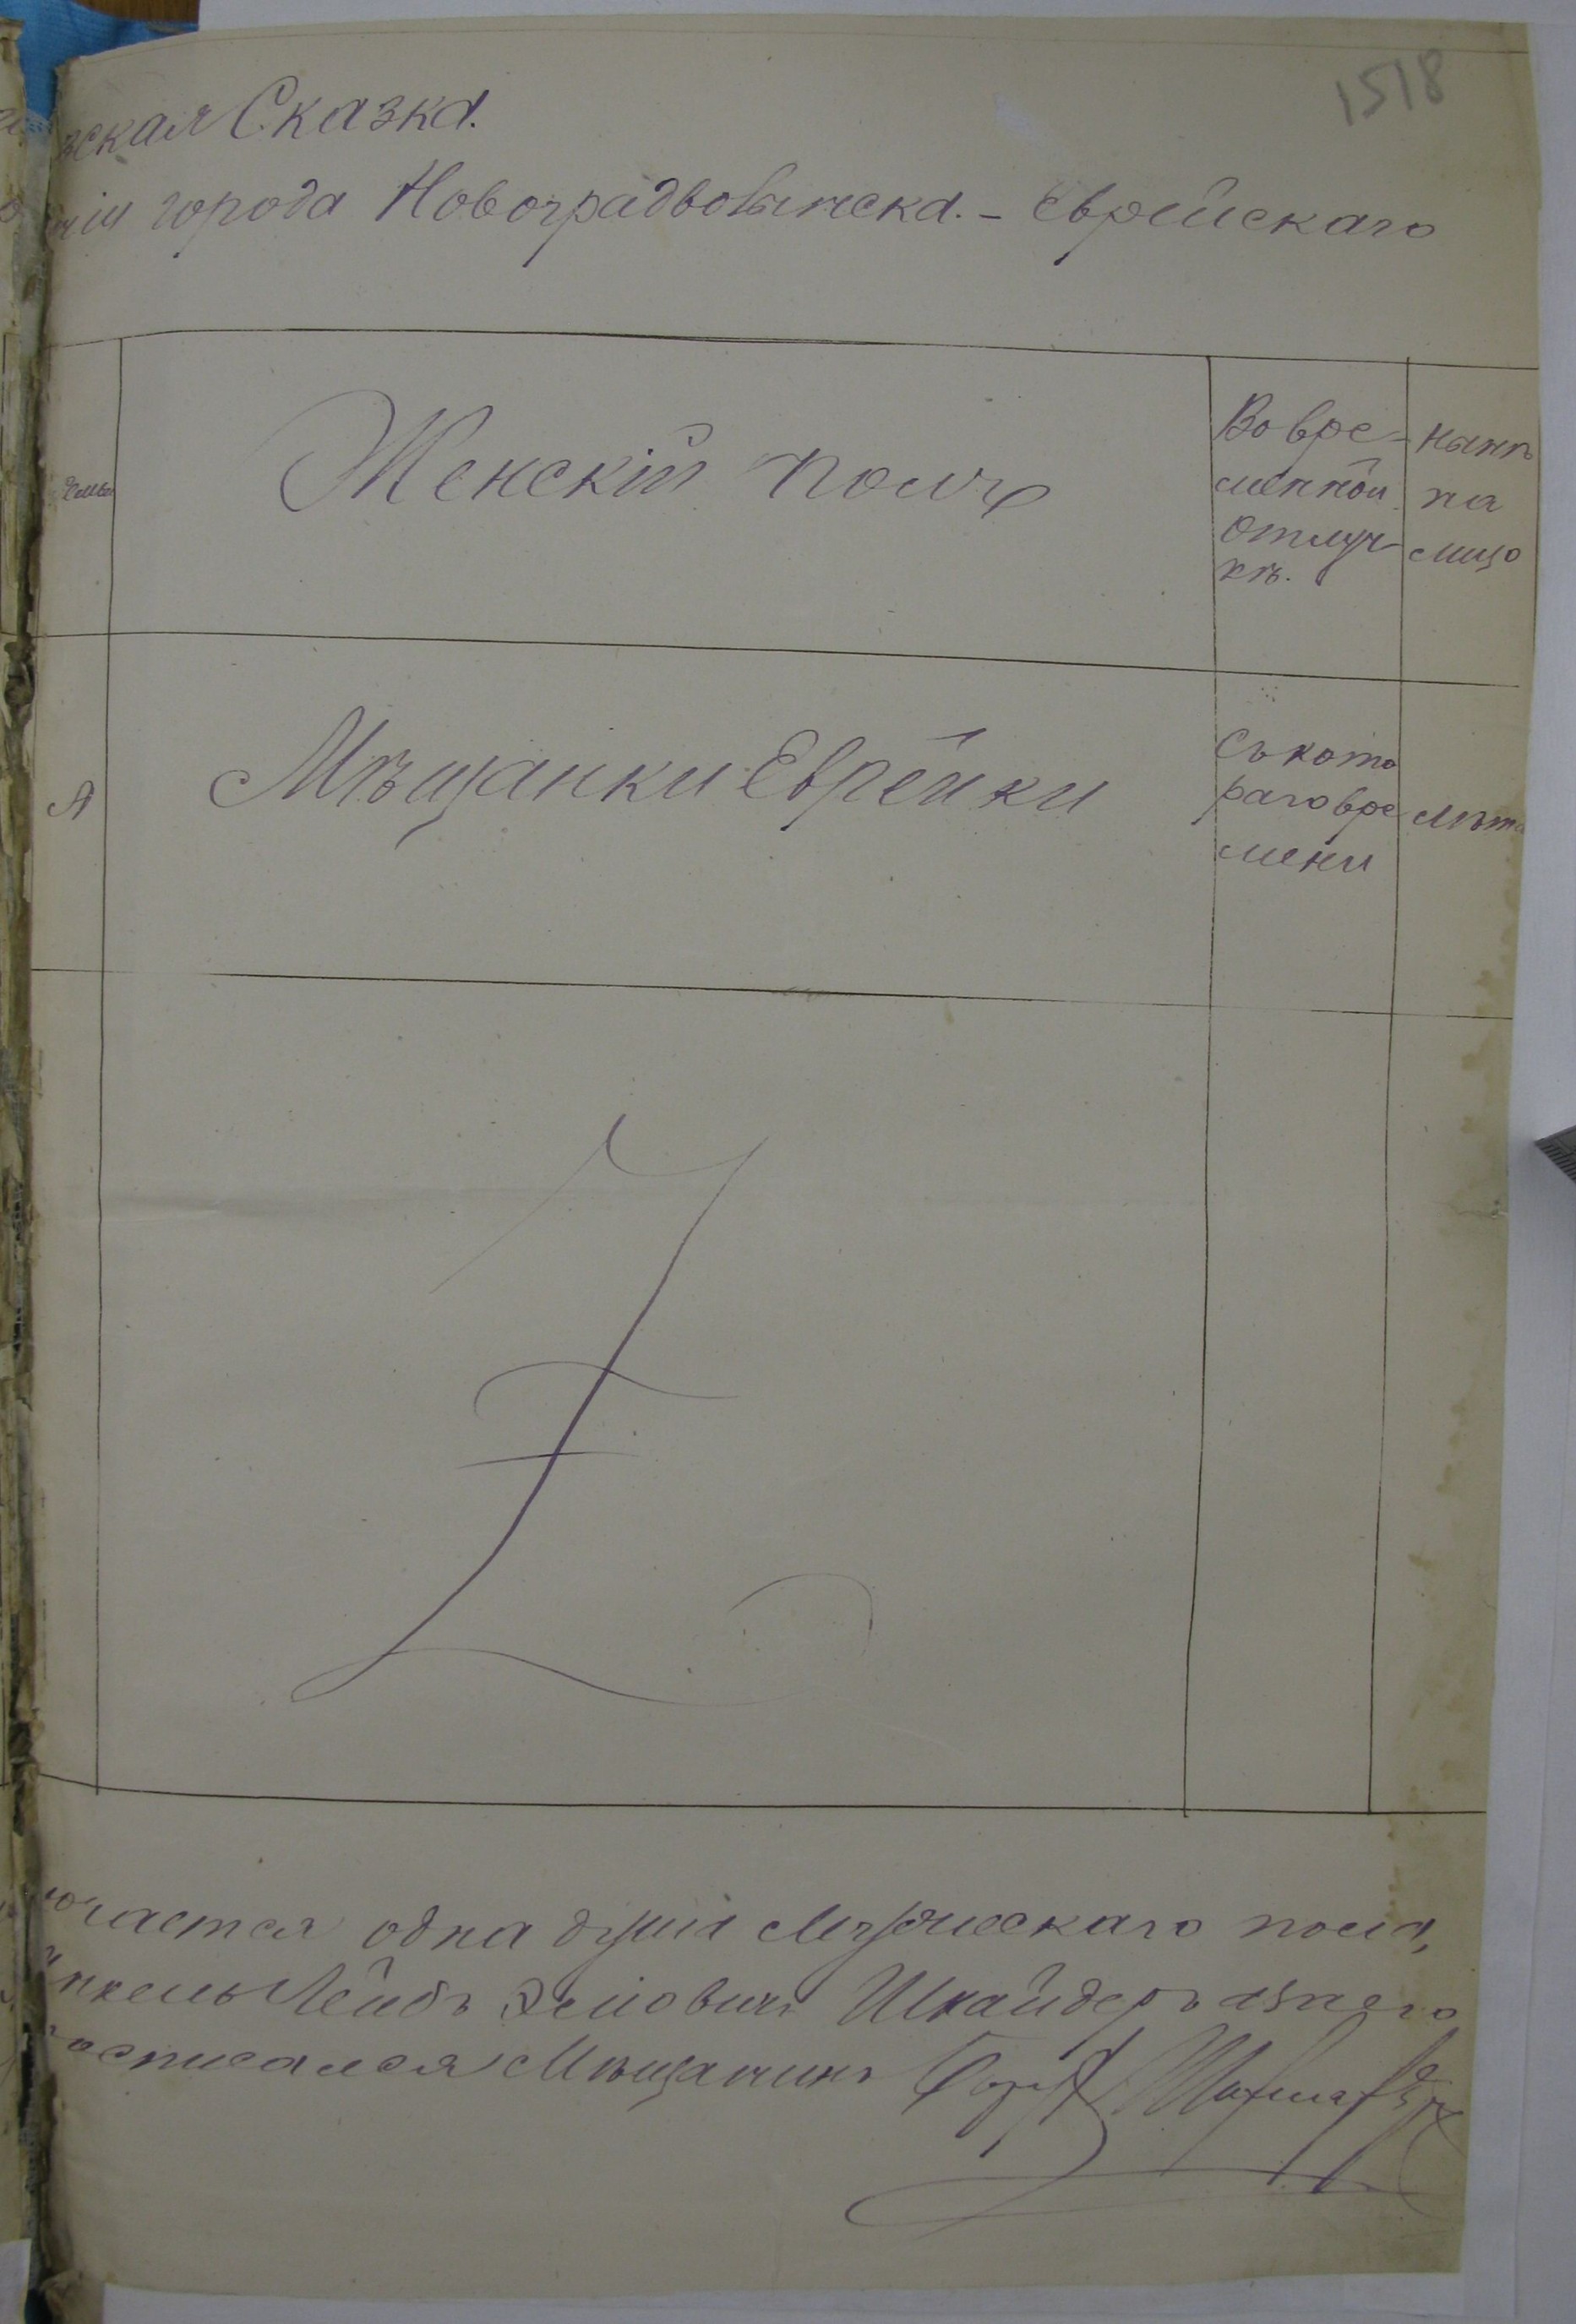 1518
зская Сказка.
нiи города Новоградволынска. - Еврейскаго
Женскiй полъ
Во вре-
менной
отлуч-
кѣ.
Нынѣ
на
лицо
я
Мѣщанки Еврейки
Съ кото
раго вре
мени
лѣта
ючается одна душа Мужескаго пола,
Лейбъ Зелiовичъ Шнайдеръ а за него
росписался Мѣщанинъ